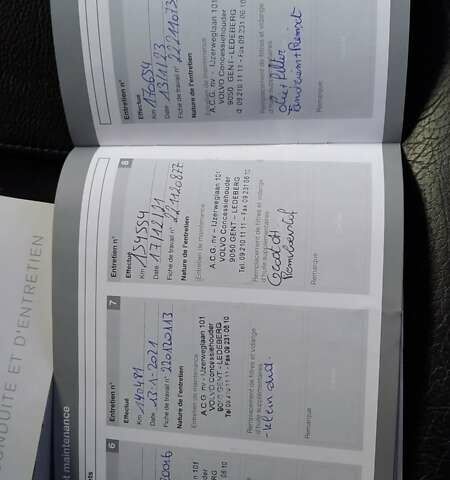 CONDUITE ET D'ENTRETIEN
maintenance
6
101
06 10
7
Entretien n°
Effectué
Km 140481
Date 13-1-2021
Fiche de travail n° 220120113
Nature de l'entretien
Entretien de maintenance
A.C.G. nv - IJzerweglaan 101
VOLVO Concessiehouder
9050 GENT - LEDEBERG
Tel 09 210 11 11 - Fax 09 231 06 10
Remplacement de filtres et vidange
d'huile supplémentaires
- klein ond.
Remarque
8
Entretien n°
Effectué
Km 154554
Date 17/12/21
Fiche de travail n° 221120877
Nature de l'entretien
Entretien de maintenance
A.C.G. nv - IJzerweglaan 101
VOLVO Concessiehouder
9050 GENT - LEDEBERG
Tel. 09 210 11 11 - Fax 09 231 06 10
Remplacement de filtres et vidange
d'huile supplémentaires
Remarque
Entretien n°
Effectué
Km 176654
Date 13/1/23
Fiche de travail n° 222211073
Nature de l'entretien
Entretien de maintenance
A.C.G. nv - IJzerweglaan 101
VOLVO Concessiehouder
9050 GENT - LEDEBERG
09 210 11 11 - Fax 09 231 06 10
Remplacement de filtres et vidange
d'huile supplémentaires
Olie + filter
Remarque